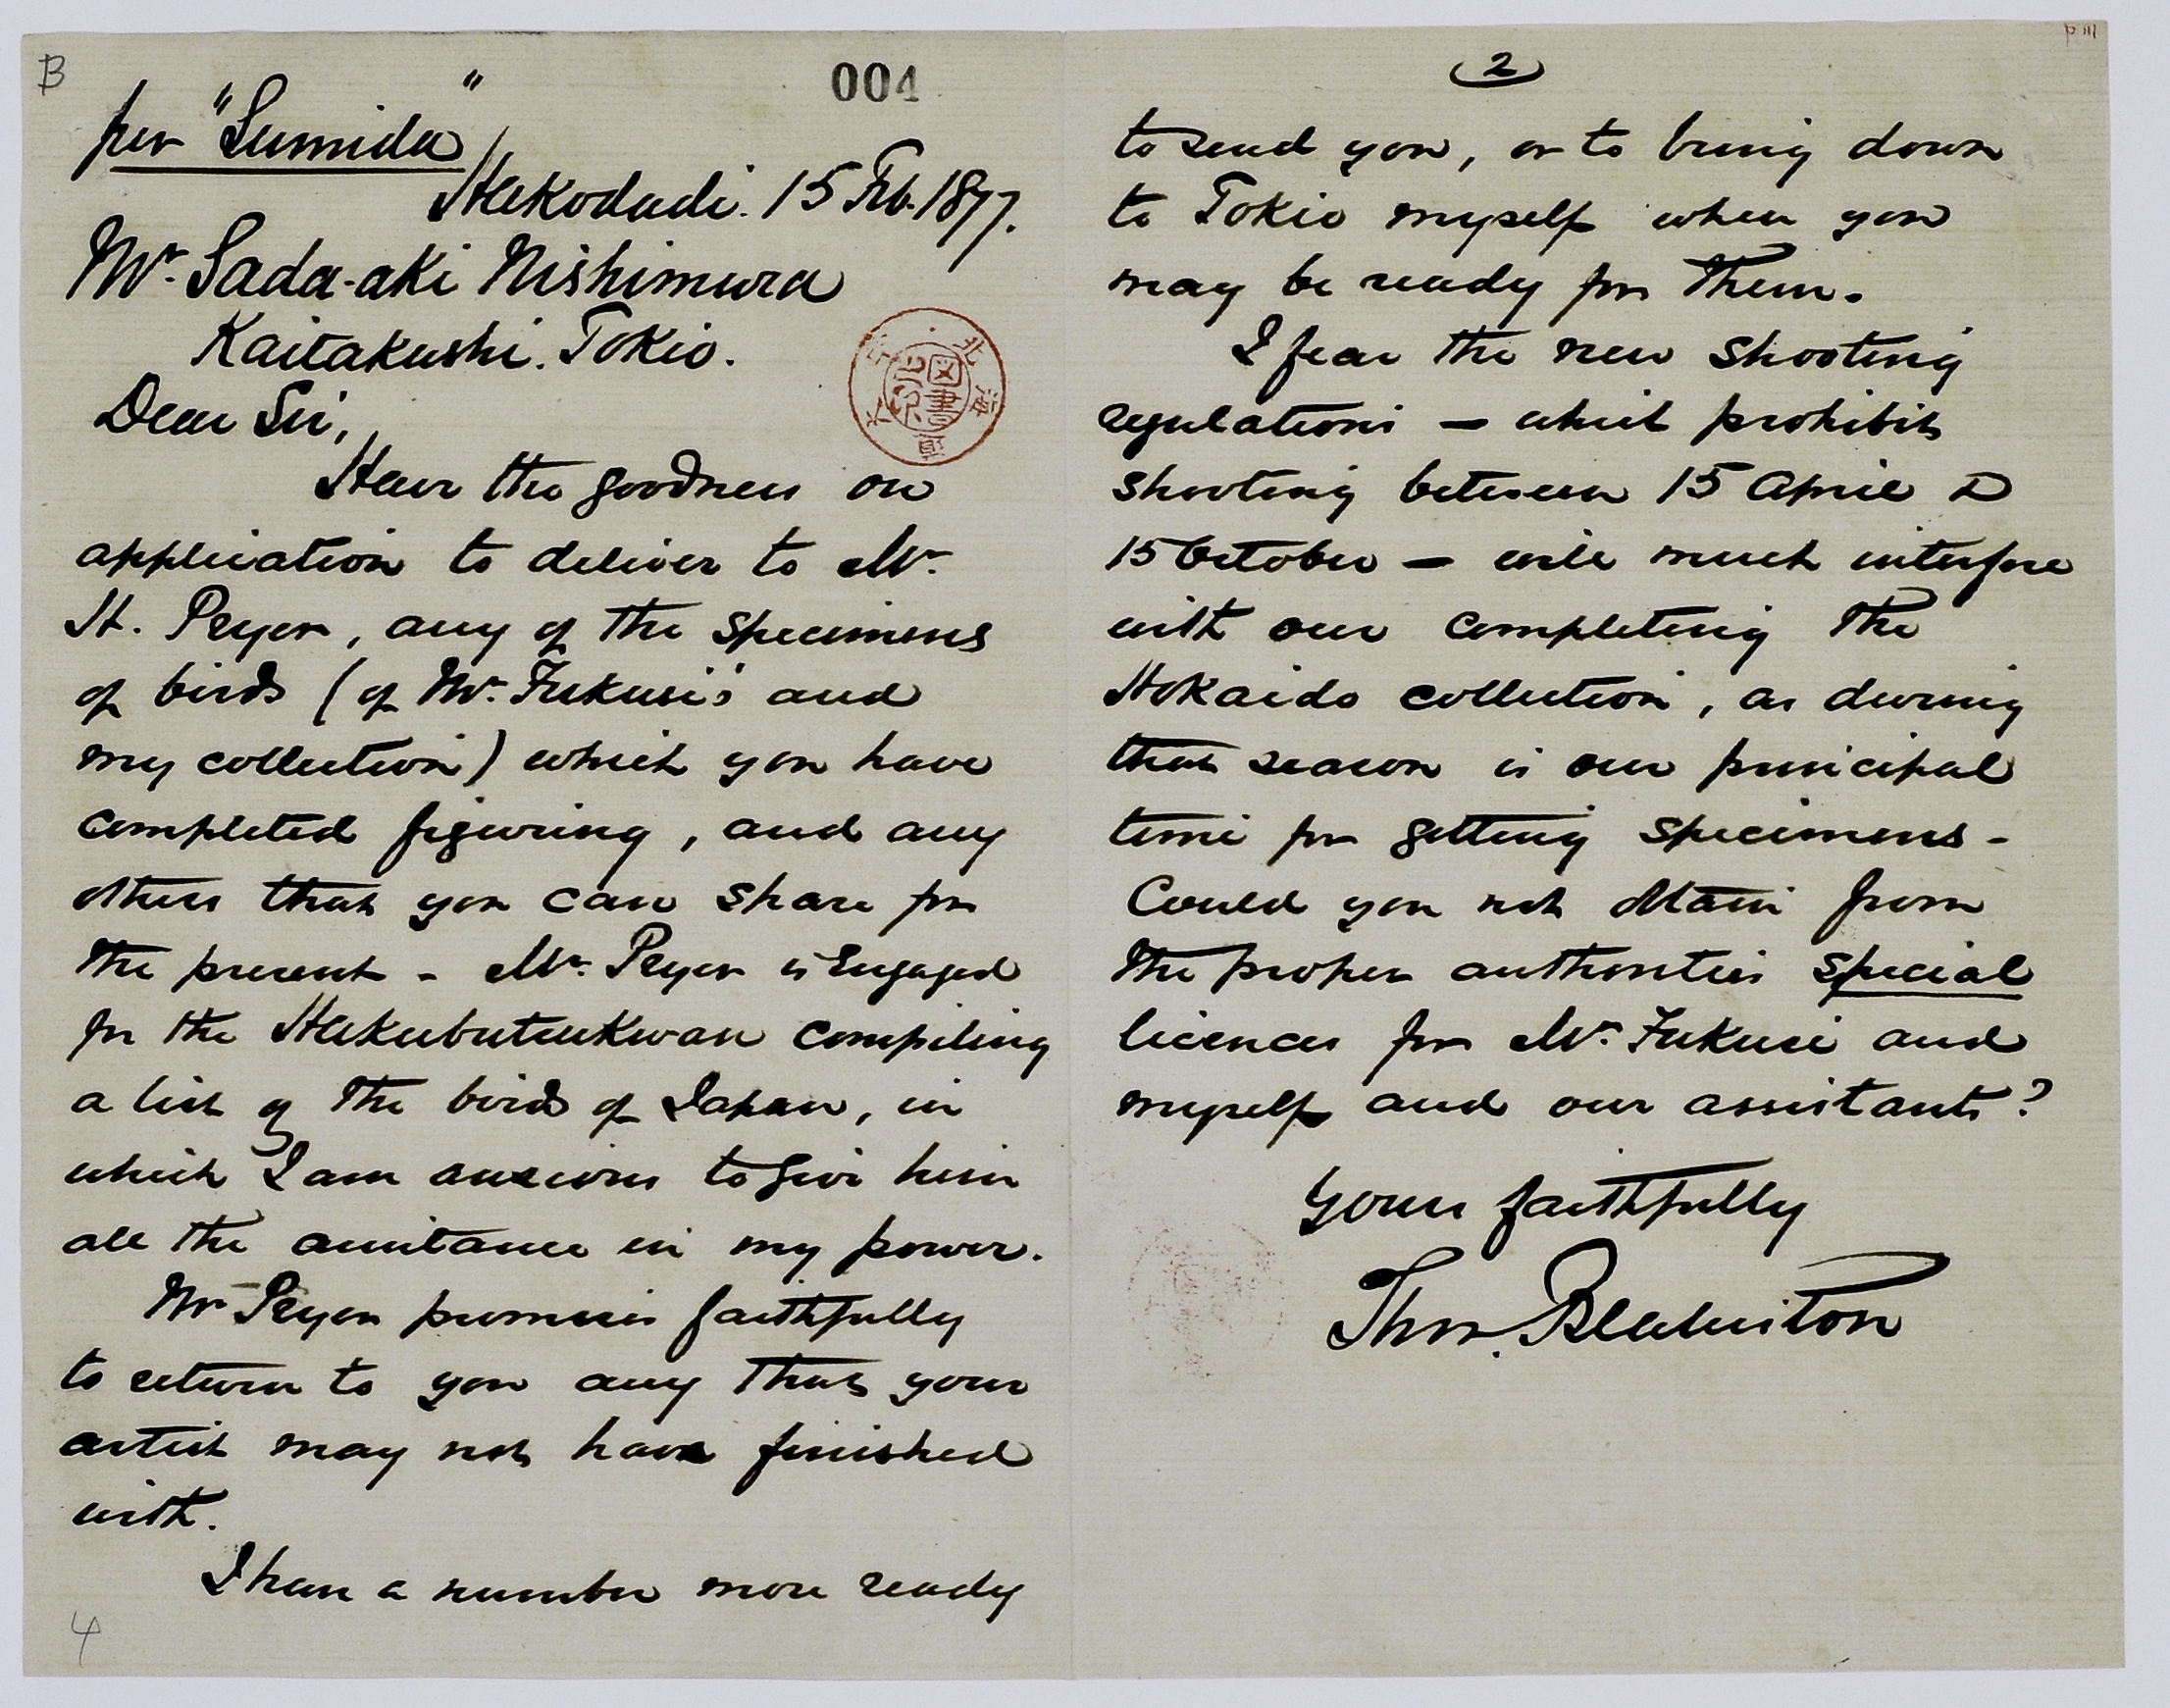 B
004
per "Sumida"
Hakodadi. 15 Feb. 1877.
Mr. Sada-aki Nishimura
Kaitakushi. Tokio.
Dear Sir,
Have the goodness on
application to deliver to Mr.
H. Pryer, any of the specimens
of birds (of Mr. Fukusi's and
my collection) which you have
completed figuring, and any
others that you can spare for
the present - Mr. Pryer is engaged
for the Hakubutsukwan compiling
a list of the birds of Japan, in
which I am anxious to give him
all the assistance in my power.
Mr Pryer promises faithfully
to return to you any that your
artist may not have finished
with.
I have a number more ready
4
2
to send you, or to bring down
to Tokio myself when you
may be ready for them.
I fear the new shooting
regulations — which prohibits
shooting between 15 April &
15 October — will much interfere
with our completing the
Hokaido collection, as during
that season is our principal
time for getting specimens -
Could you not obtain from
the proper authorities special
licences for Mr. Fukusi and
myself and our assistants?
Yours faithfully
Thos. Blakiston